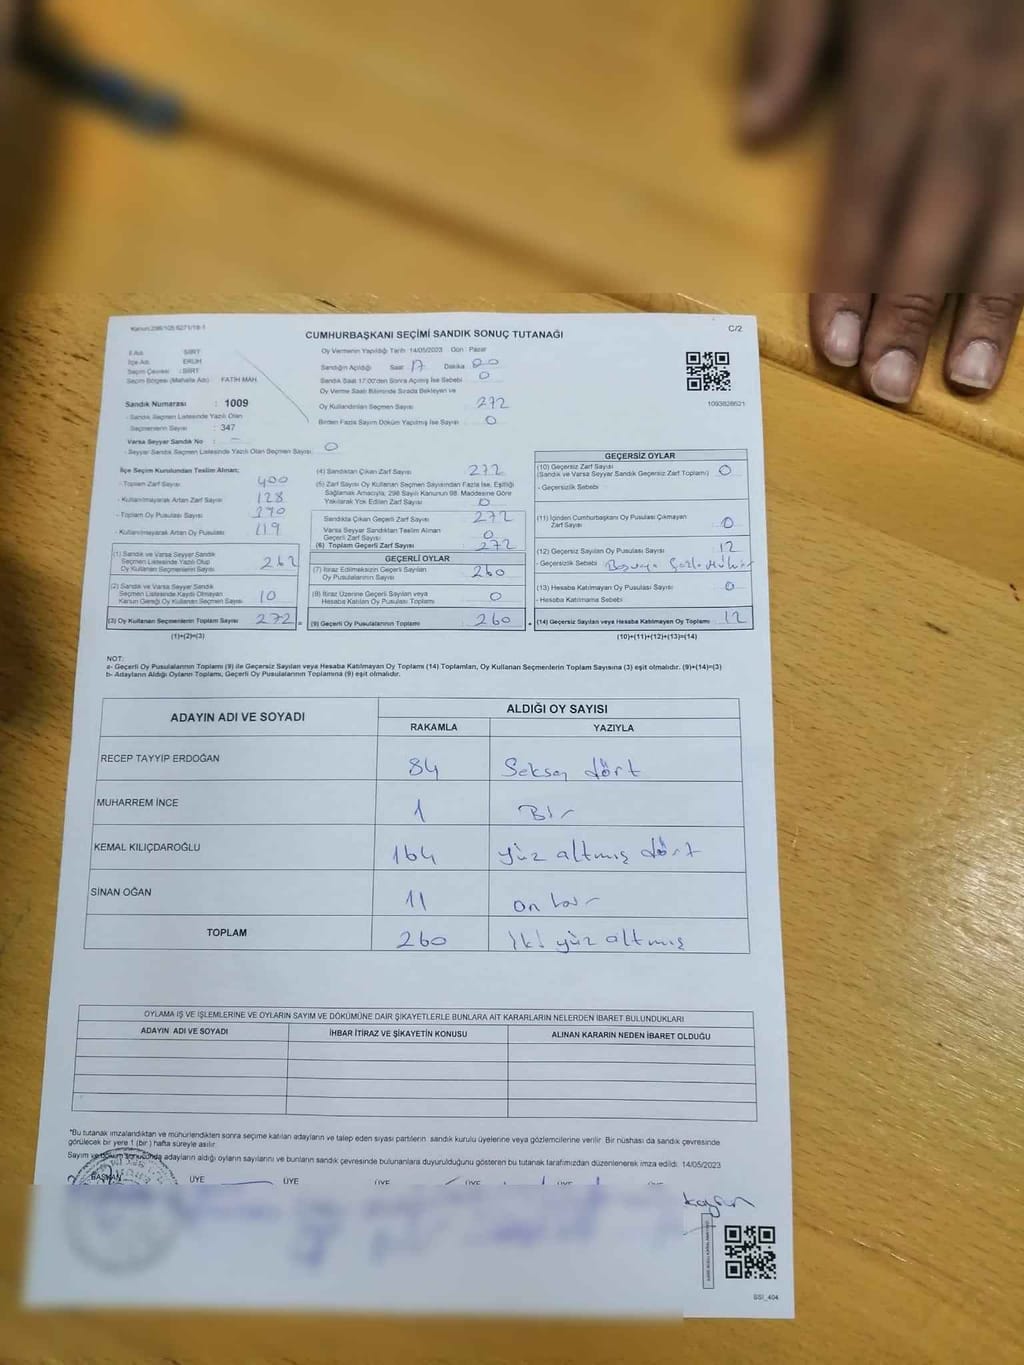 Kanun:298/105 6271/19-1
CUMHURBAŞKANI SEÇİMİ SANDIK SONUÇ TUTANAĞI
C/2
İl Adı : SİİRT
İlçe Adı : ERUH
Seçim Çevresi : SİİRT
Seçim Bölgesi (Mahalle Adı) : FATİH MAH
Sandık Numarası : 1009
- Sandık Seçmen Listesinde Yazılı Olan
Seçmenlerin Sayısı : 347
Varsa Seyyar Sandık No : –
- Seyyar Sandık Seçmen Listesinde Yazılı Olan Seçmen Sayısı : 0
Oy Vermenin Yapıldığı Tarih :14/05/2023 Gün : Pazar
Sandığın Açıldığı Saat 17 Dakika 00
Sandık Saat 17:00'den Sonra Açılmış İse Sebebi 0
Oy Verme Saati Bitiminde Sırada Bekleyen ve
Oy Kullandırılan Seçmen Sayısı 272
Birden Fazla Sayım Döküm Yapılmış İse Sayısı 0
1093828621
İlçe Seçim Kurulundan Teslim Alınan;
- Toplam Zarf Sayısı 400
- Kullanılmayarak Artan Zarf Sayısı 128
- Toplam Oy Pusulası Sayısı 390
- Kullanılmayarak Artan Oy Pusulası 119
(1) Sandık ve Varsa Seyyar Sandık
Seçmen Listesinde Yazılı Olup
Oy Kullanan Seçmenlerin Sayısı 262
(2) Sandık ve Varsa Seyyar Sandık
Seçmen Listesinde Kaydı Olmayan
Kanun Gereği Oy Kullanan Seçmen Sayısı 10
(3) Oy Kullanan Seçmenlerin Toplam Sayısı 272
(1)+(2)=(3)
(4) Sandıktan Çıkan Zarf Sayısı 272
(5) Zarf Sayısı Oy Kullanan Seçmen Sayısından Fazla İse, Eşitliği
Sağlamak Amacıyla, 298 Sayılı Kanunun 98. Maddesine Göre
Yakılarak Yok Edilen Zarf Sayısı 0
Sandıkta Çıkan Geçerli Zarf Sayısı 272
Varsa Seyyar Sandıktan Teslim Alınan
Geçerli Zarf Sayısı 0
(6) Toplam Geçerli Zarf Sayısı 272
GEÇERLİ OYLAR
(7) İtiraz Edilmeksizin Geçerli Sayılan
Oy Pusulalarının Sayısı 260
(8) İtiraz Üzerine Geçerli Sayılan veya
Hesaba Katılan Oy Pusulası Toplamı 0
= (9) Geçerli Oy Pusulalarının Toplamı 260
GEÇERSİZ OYLAR
(10) Geçersiz Zarf Sayısı
(Sandık ve Varsa Seyyar Sandık Geçersiz Zarf Toplamı) 0
- Geçersizlik Sebebi
(11) İçinden Cumhurbaşkanı Oy Pusulası Çıkmayan
Zarf Sayısı 0
(12) Geçersiz Sayılan Oy Pusulası Sayısı 12
- Geçersizlik Sebebi
(13) Hesaba Katılmayan Oy Pusulası Sayısı 0
- Hesaba Katılmama Sebebi
+ (14) Geçersiz Sayılan veya Hesaba Katılmayan Oy Toplamı 12
(10)+(11)+(12)+(13)=(14)
NOT:
a- Geçerli Oy Pusulalarının Toplamı (9) ile Geçersiz Sayılan veya Hesaba Katılmayan Oy Toplamı (14) Toplamları, Oy Kullanan Seçmenlerin Toplam Sayısına (3) eşit olmalıdır. (9)+(14)=(3)
b- Adayların Aldığı Oyların Toplamı, Geçerli Oy Pusulalarının Toplamına (9) eşit olmalıdır.
ADAYIN ADI VE SOYADI
ALDIĞI OY SAYISI
RAKAMLA YAZIYLA
RECEP TAYYİP ERDOĞAN 84 Seksen dört
MUHARREM İNCE 1 Bir
KEMAL KILIÇDAROĞLU 164 yüz altmış dört
SİNAN OĞAN 11 on bir
TOPLAM 260 iki yüz altmış
OYLAMA İŞ VE İŞLEMLERİNE VE OYLARIN SAYIM VE DÖKÜMÜNE DAİR ŞİKAYETLERLE BUNLARA AİT KARARLARIN NELERDEN İBARET BULUNDUKLARI
ADAYIN ADI VE SOYADI İHBAR İTİRAZ VE ŞİKAYETİN KONUSU ALINAN KARARIN NEDEN İBARET OLDUĞU
*Bu tutanak imzalandıktan ve mühürlendikten sonra seçime katılan adayların ve talep eden siyasi partilerin sandık kurulu üyelerine veya gözlemcilerine verilir. Bir nüshası da sandık çevresinde
görülecek bir yere 1 (bir) hafta süreyle asılır.
Sayım ve döküm sonucunda adayların aldığı oyların sayılarını ve bunların sandık çevresinde bulunanlara duyurulduğunu gösteren bu tutanak tarafımızdan düzenlenerek imza edildi. 14/05/2023
BAŞKAN ÜYE ÜYE ÜYE ÜYE ÜYE ÜYE
SSİ_404